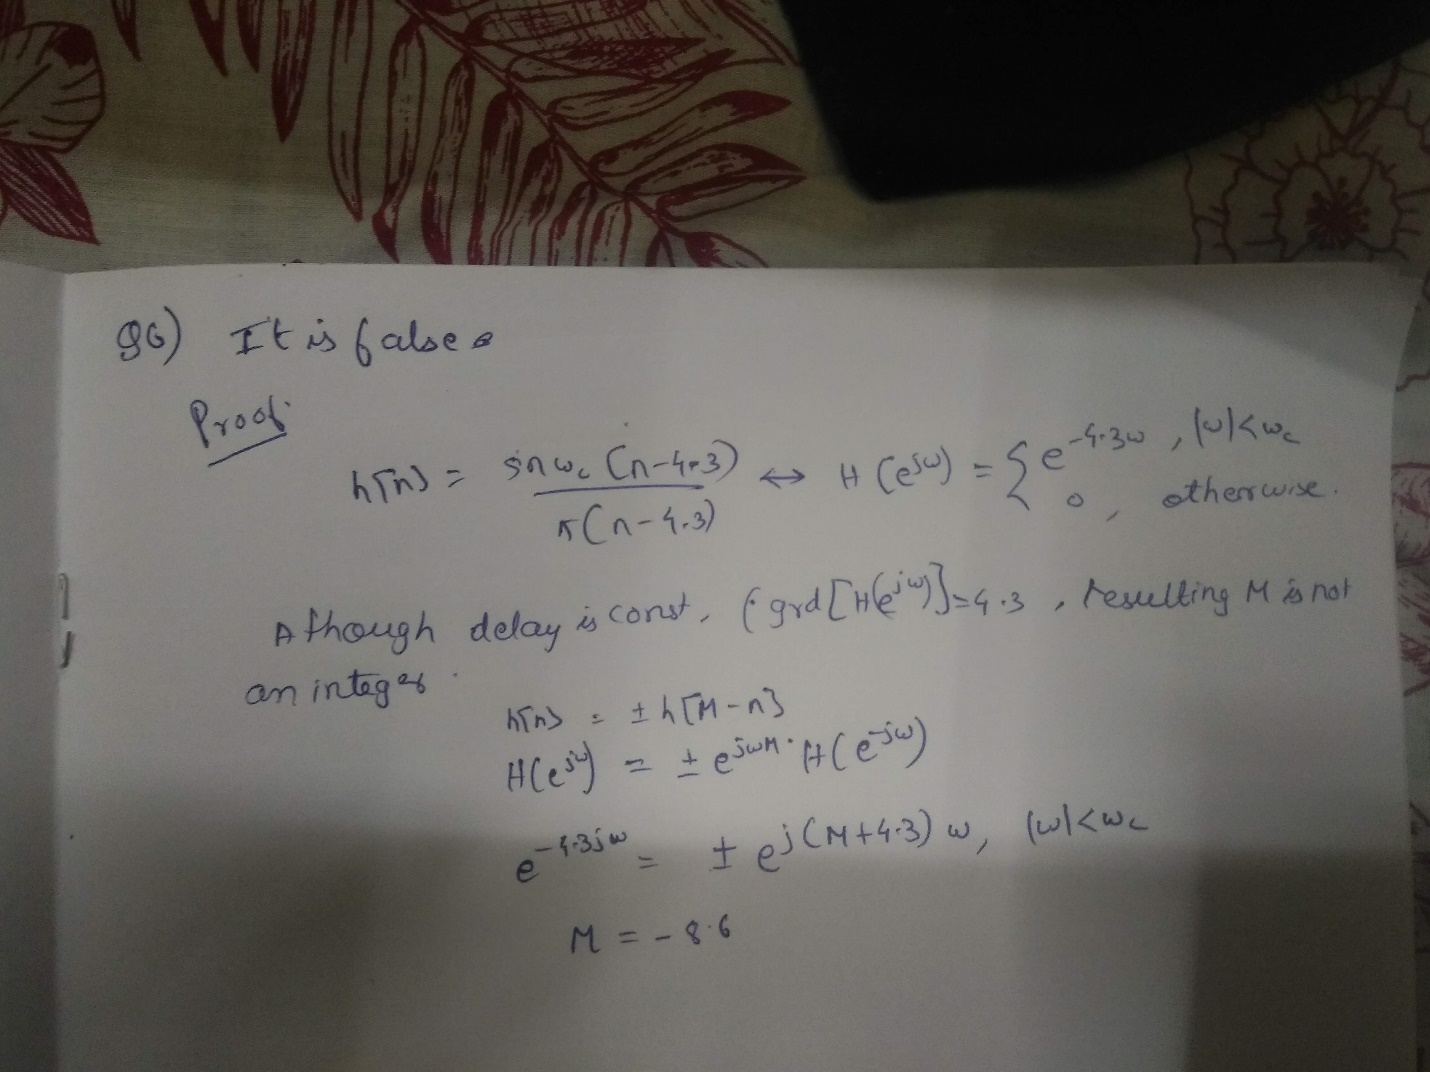 96) It is false.
Proof:
h[n] = sin ωc (n-4.3) / π(n-4.3) ↔ H(e^jω) = { e^-4.3ω , |ω|<ωc
0 , otherwise.
Although delay is const, (grd[H(e^jω)]=4.3 , resulting M is not
an integer.
h[n] = ± h[M-n]
H(e^jω) = ± e^jωM. H(e^-jω)
e^-4.3jω = ± e^j(M+4.3)ω, |ω|<ωc
M = -8.6